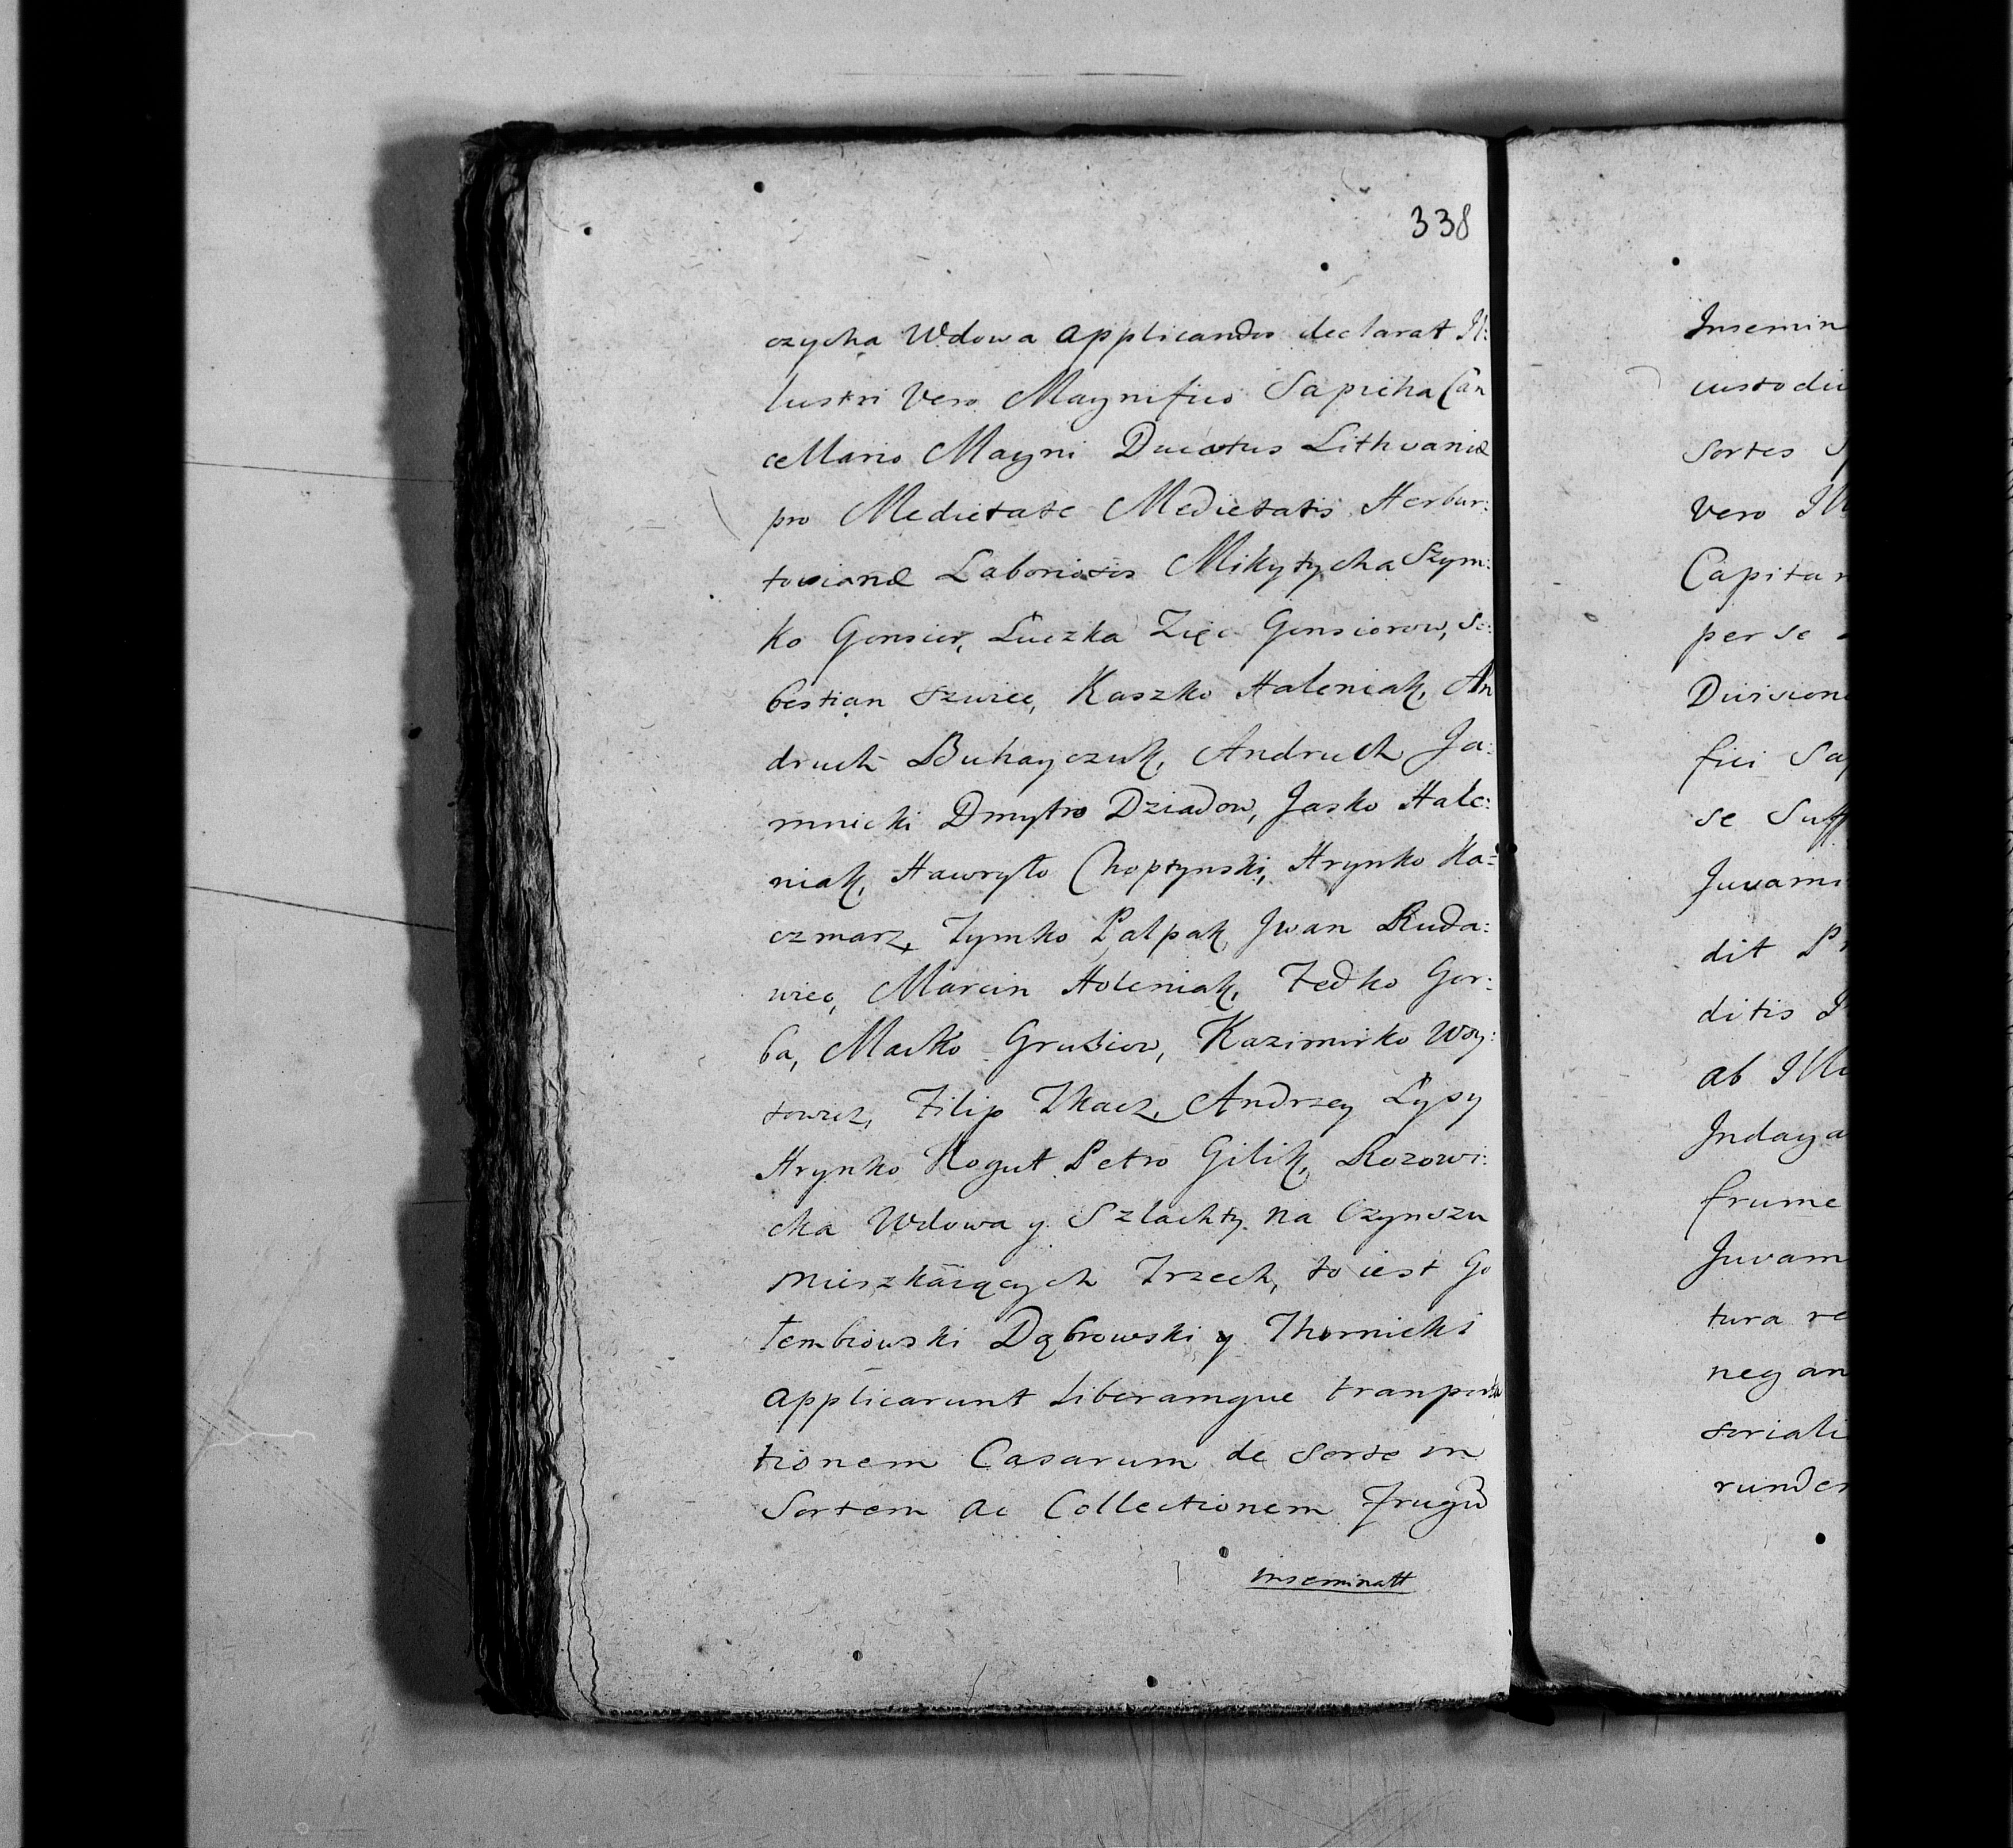 338
czycha Wdowa applicandos declarat Il:
lustri vero Magnifico Sapieha Can
cellario Magni Ducatus Lithvaniæ
pro Medietate Medietatis Herbur:
towianæ Laboriosos Mikytycha Szym:
ko Gonsior, Luczka Zięc Gonsiorow, Se:
bestian Szwiec, Kaszko Haleniak, An
druch Buhayczuk, Andruch Ja:
mnicki Dmytro Dziadow, Jasko Hale:
niak, Hawryło Choptynski, Hrynko Ka:
czmarz, Tymko Palpak, Jwan Ruda:
wiec, Marcin Holeniak, Fedko Gor:
ba, Macko Grusiow, Kazimirko Woy:
towicz, Filip Tkacz, Andrzey Łysy
Hrynko Kogut Petro Gilik, Rozowi:
cka Wdowa y Szlachty na Czynszu
mieszkaiących Trzech, to iest Go
łembiowski Dąbrowski y Thornicki
applicarunt liberamque tranporta
tionem Casarum de Sorte in
Sortem ac Collectionem Frugū
inseminatt
Insemin
custodi
Sortes S
vero Ill
Capitan
per se
Division
fici Sap
se Suff
Juvami
dit P
ditis
ab Illu
Indaga
frume
Juvam
tura re
neg an
toriali
runder